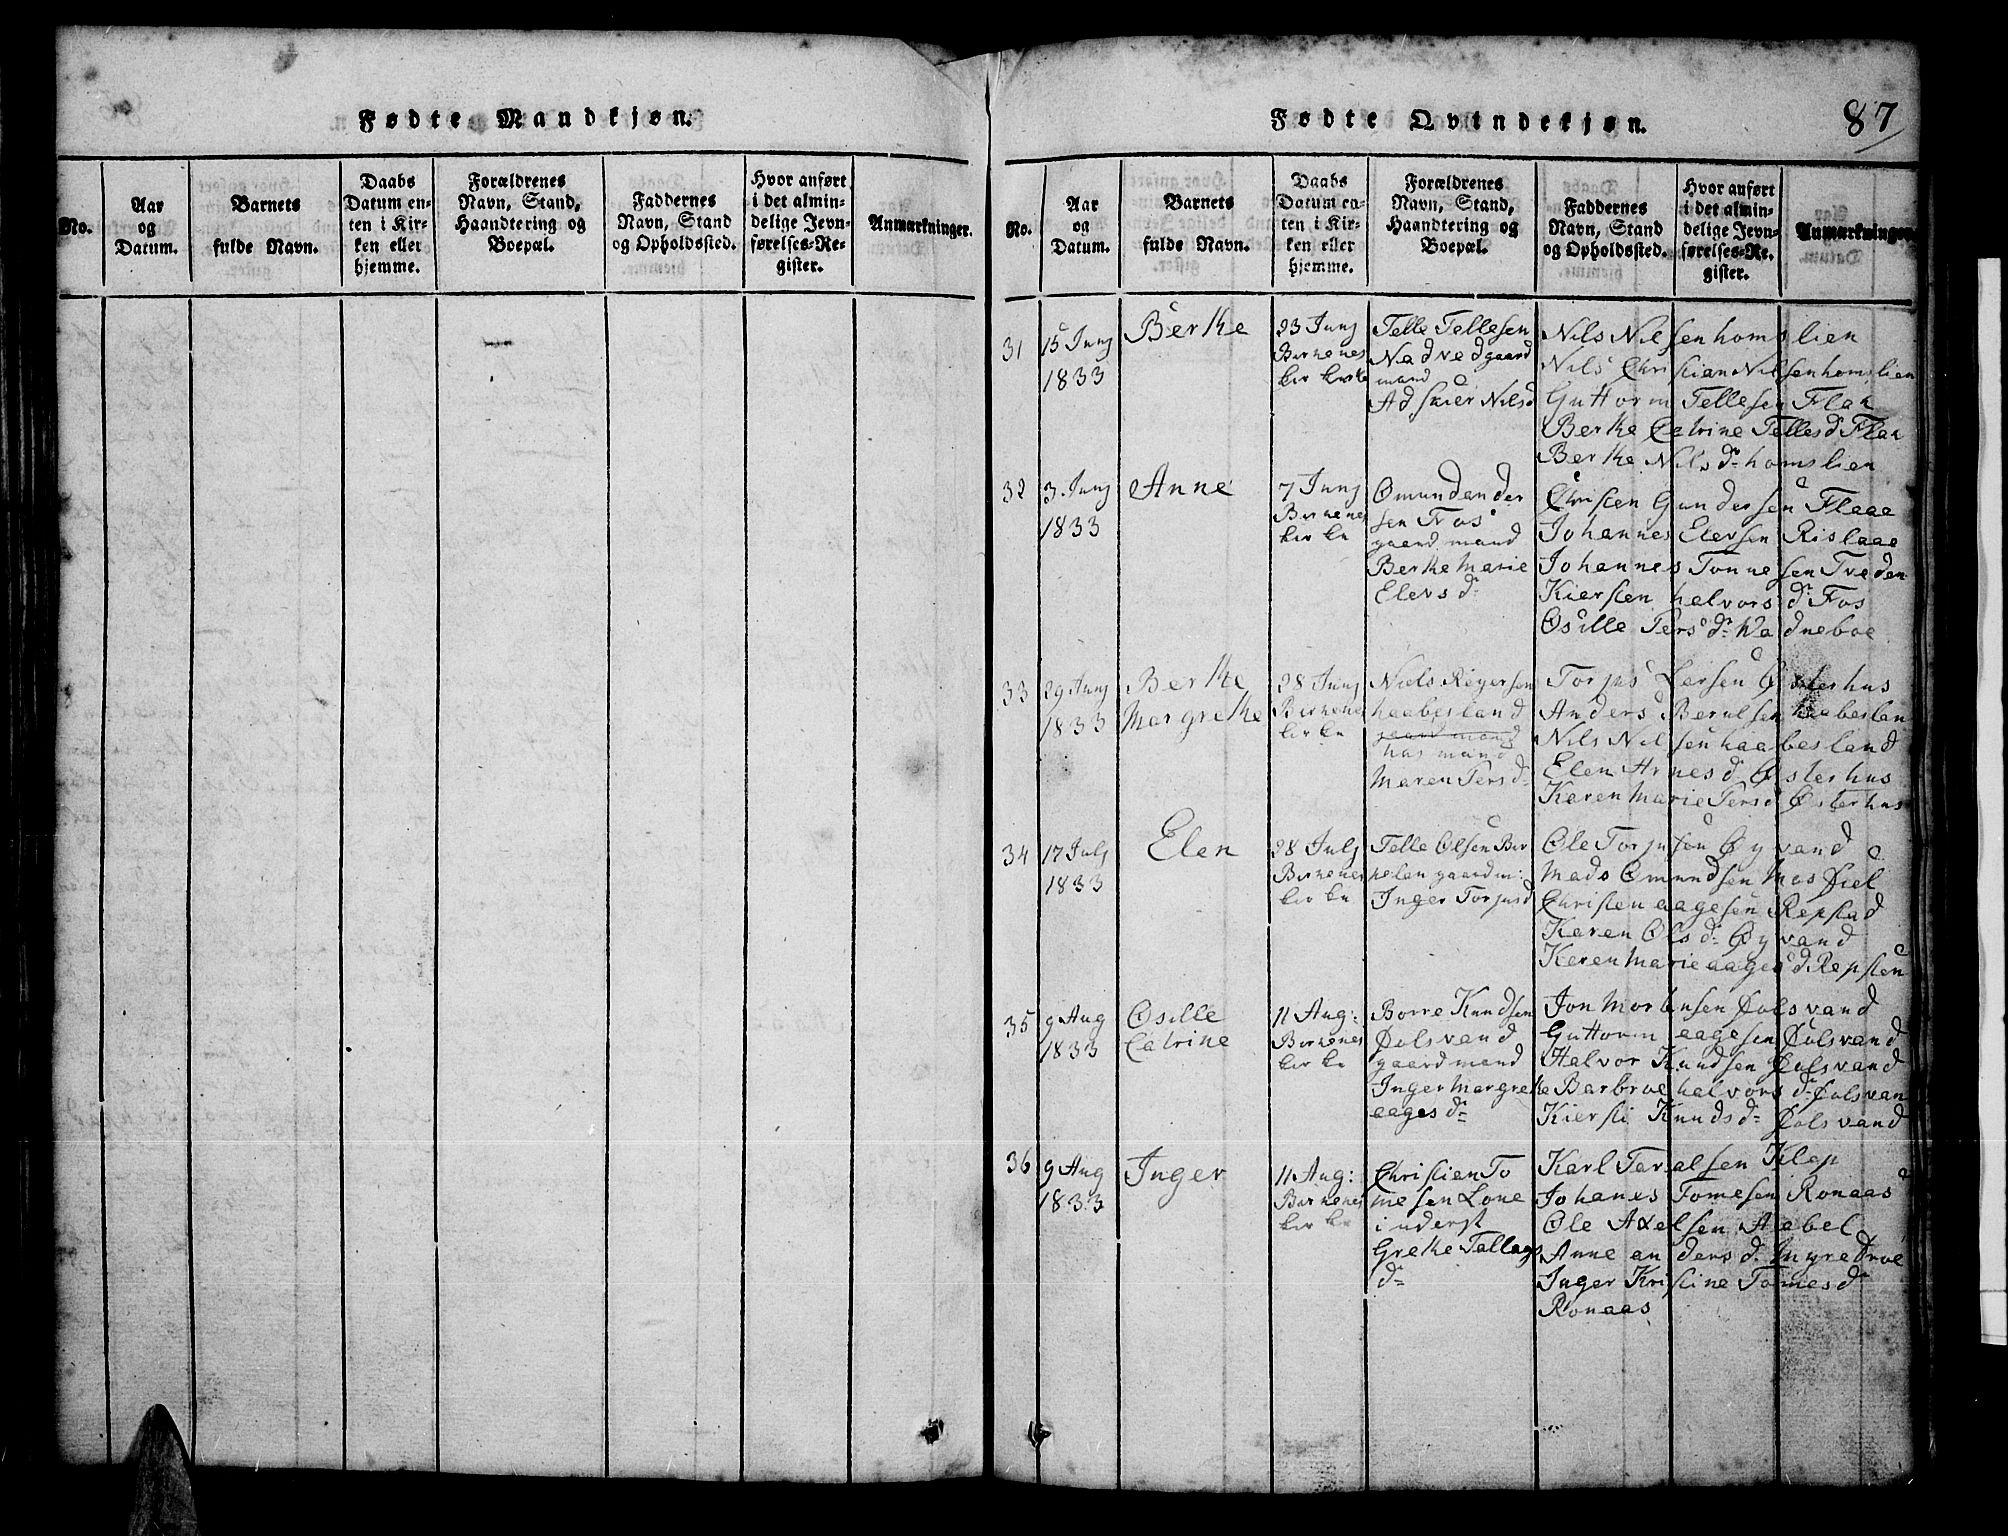 Fødte Mandkjøn.
No.
Aar
og
Datum.
Barnets
fulde Navn.
Daabs
Datum en-
ten i Kir-
ken eller
hjemme.
Forældrenes
Navn, Stand,
Haandtering og
Boepæl.
Faddernes
Navn, Stand
og Opholdssted.
Hvor anført
i det almin-
delige Jevn-
førelses-Re-
gister.
Anmærkninger.
Fødte Qvindekjøn.
87
No.
Aar
og
Datum.
Barnets
fulde Navn.
Daabs
Datum en-
ten i Kir-
ken eller
hjemme.
Forældrenes
Navn, Stand,
Haandtering og
Boepæl.
Faddernes
Navn, Stand
og Opholdssted.
Hvor anført
i det almin-
delige Jevn-
førelses-Re-
gister.
Anmærkninger
31
15 Junj
1833
Berthe
23 Junj
Birkenes
kirke
Telle Tellesen
gaard
mand
Nilsd
Nils Nilsen homslien
Nils Christian Nilsen homslien
Guttorm Tellesen Flak
Berthe Catrine Tellesd Flak
Berthe Nilsdr homslien
32
3 Junj
1833
Anne
7 Junj
Birkenes
kirke
Omund ander
sen Fos
gaard mand
Berthe Marie
Elevs dr
Christen Gundersen Flaae
Johannes Elefsen Rislaae
Johannes Tonnesen Tveden
Kiersten helvors dr Fos
Osille Pers dr
33
29 Junj
1833
Berthe
Margrethe
28 Junj
Birkenes
kirke
Niels Reyersen
haabesland
gaard mand
hus mand
Maren Persdr
Torjus Larsen Østerhus
Anders Berulsen haabeslan
Nils Nilsen haabesland
Elen Arnesd Østerhus
Karen Marie Persd Østerhus
34
17 Julj
1833
Elen
28 Julj
Birkenes
kirke
Telle Olsen Bir
kelan gaardm:
Inger Torjusd
Ole Torjusen Øyvand
Mads Omundsen Mosfiel
Christen aagesen Repstad
Karen Ols dr Øyvand
Karen Marie aages d Repsten
35
9 Aug
1833
Osille
Catrine
11 Aug:
Birkenes
kirke
Borre Knudsen
Dolsvand
gaard mand
Inger Margrethe
aages dr
Jon Mortensen Dolsvand
Guttorm aagesen Dolsvand
Halvor Knudsen Dolsvand
Barbroe halvors dr Dolsvan
Kiersti Knuds dr Dolsvand
36
9 Aug
1833
Inger
11 Aug:
Birkenes
kirke
Christien To
mesen Lone
inderst
Grethe Tallags
dr
Karl Terjelsen Klep
Johanes Tomesen Ronaas
Ole Axelsen Aabel
Anne anders dr
Inger Kristine Tomesdr
Ronaas